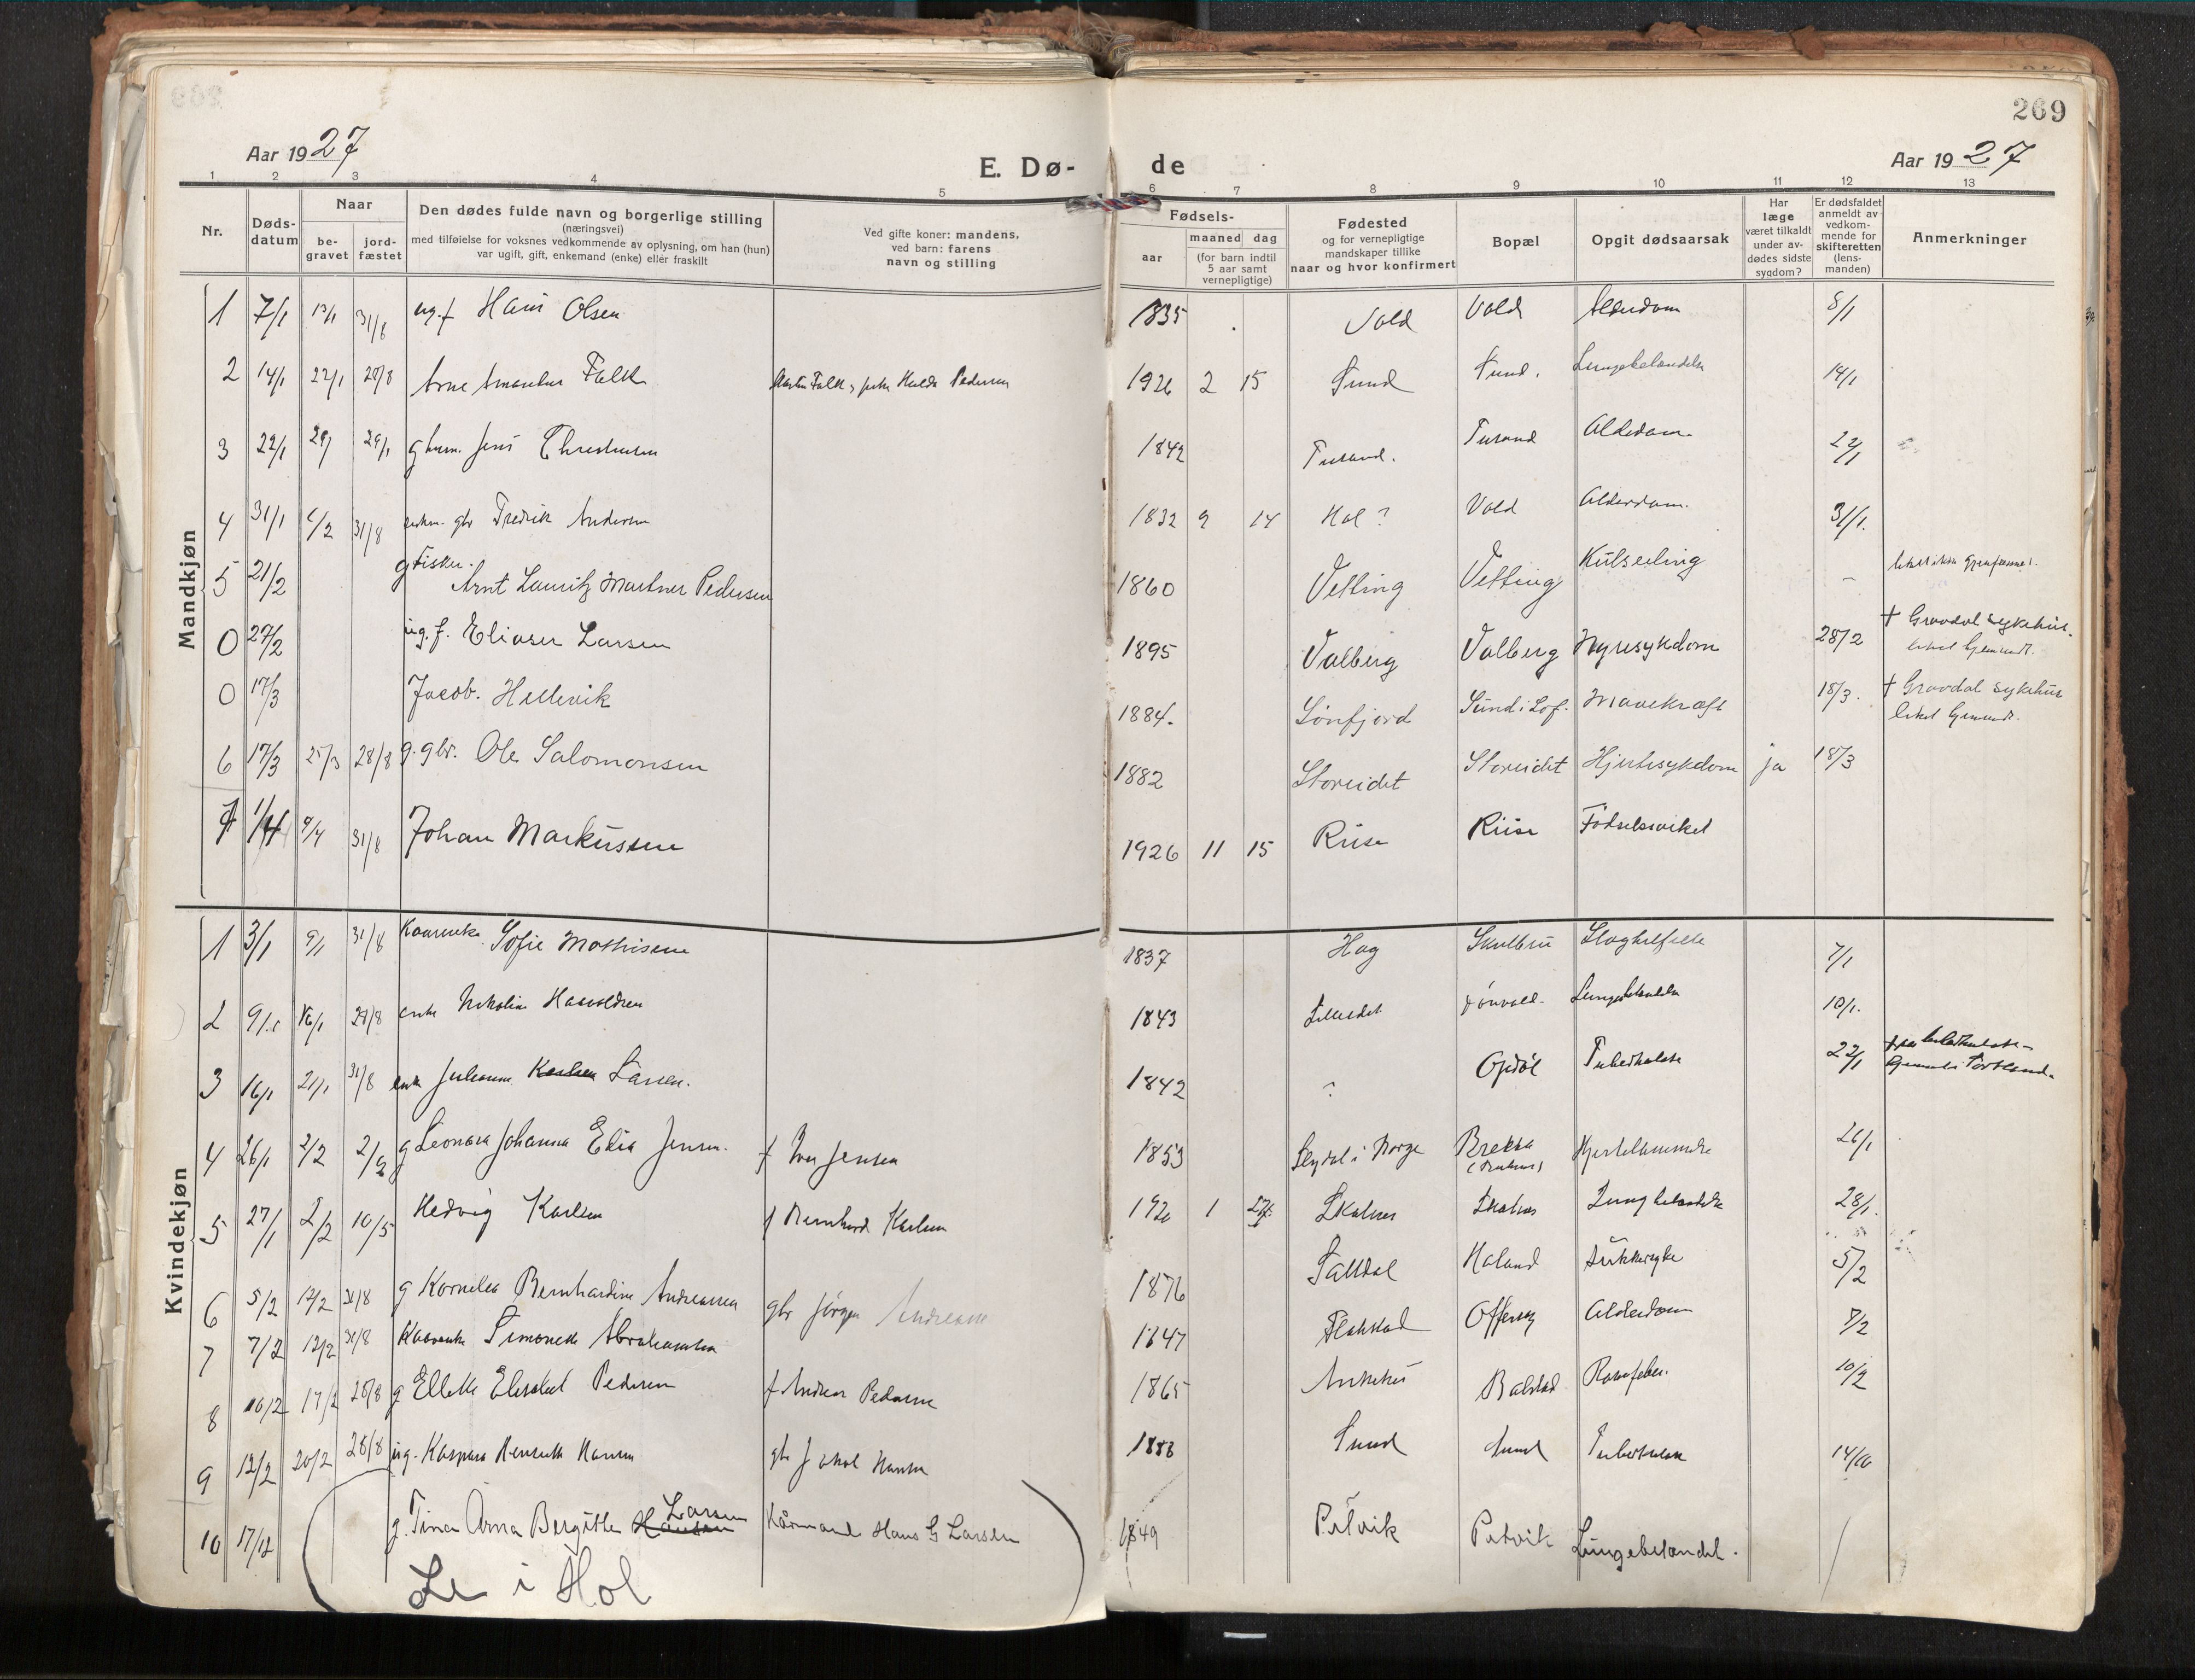 269
Aar 1927
E. Dø-
de
Aar 1927
1 2 3 4 5 6 7 8 9 10 11 12 13
Nr.
Døds-
datum
Naar
be-
gravet
jord-
fæstet
Den dødes fulde navn og borgerlige stilling
(næringsvei)
med tilføielse for voksnes vedkommende av oplysning, om han (hun)
var ugift, gift, enkemand (enke) eller fraskilt
Ved gifte koner: mandens,
ved barn: farens
navn og stilling
Fødsels-
aar
maaned dag
(for barn indtil
5 aar samt
vernepligtige)
Fødested
og for vernepligtige
mandskaper tillike
naar og hvor konfirmert
Bopæl
Opgit dødsaarsak
Har
læge
været tilkaldt
under av-
dødes sidste
sygdom?
Er dødsfaldet
anmeldt av
vedkom-
mende for
skifteretten
(lens-
manden)
Anmerkninger
Mandkjøn
1 7/1 13/1 31/8 ug. f Hans Olsen 1835 Vold Vold Alderdom 8/1
2 14/1 22/1 28/8 Arne Falk Falk, Hulda Pedersen 1926 2 15 Sund Sund. Lungebetændelse 14/1
3 22/1 29/1 g Jens Christensen 1842 Alderdom 22/1
4 31/1 31/8 gbr Fredrik Andersen 1832 9 14 Hol? Vold Alderdom. 31/1.
5 21/2 g Fisker.
Arnt Lauritz Martner Pedersen 1860 Vetting Vetting Kulseiling –
0 27/2 ug. f. Eliaser Larsen 1895 Valberg Valberg Nyresykdom 28/2 † Gravdal sykehus.
0 17/3 Jacob. Hellevik 1884. Sönfjord Sund i Lof. Mavekræft 18/3. † Gravdal sykehus
6 17/3 25/3 28/8 g. gbr. Ole Salomonsen 1882 Storeidet Storeidet Hjertesykdom ja 18/3
7 1/4 9/4 31/8 Johan Markussen 1926 11 15 Riise Riise Födselssvikel
Kvindekjøn
1 3/1 9/1 31/8 Kaarenke Sofie Mathisen 1837 Hag Skulbru 7/1
2 16/1 29/8 enke 1843 Lungebetændelse 10/1.
3 16/1 21/1 31/8 enke Julianna Karlsen Larsen. 1842 ? Opdöl Tuberkulose 22/1
4 26/1 2/2 g Leonora Johanna Elia Jensen. f Jensen 1853 i Norge Brekka 26/1
5 27/1 2/2 10/5 Hedvig Karlsen f Bernhard Karlsen 1926 1 Skotnes Skotnes Lungebetændelse 28/1.
6 5/2 12/2 31/8 g Kornelia Bernhardine Andreassen gbr Jörgen Andreassen 1876 Saltdal Haland Sukkersyke 5/2
7 7/2 12/2 31/8 Kaarenke Abrahamsen 1847 Flakstad Offersøy Alderdom 7/2
8 10/2 17/2 28/8 g Pedersen f Andreas Pedersen 1865 Balstad Rosefeber. 10/2
9 12/2 20/2 28/8 ug. Hansen gbr Hansen Sund Sund Tuberkulose
10 17/12 g. Tina Anna Bergitte Hansen Larsen Kårmand Hans G Larsen 1849 Petvik Petvik Lungebetændel.
Se i Hol